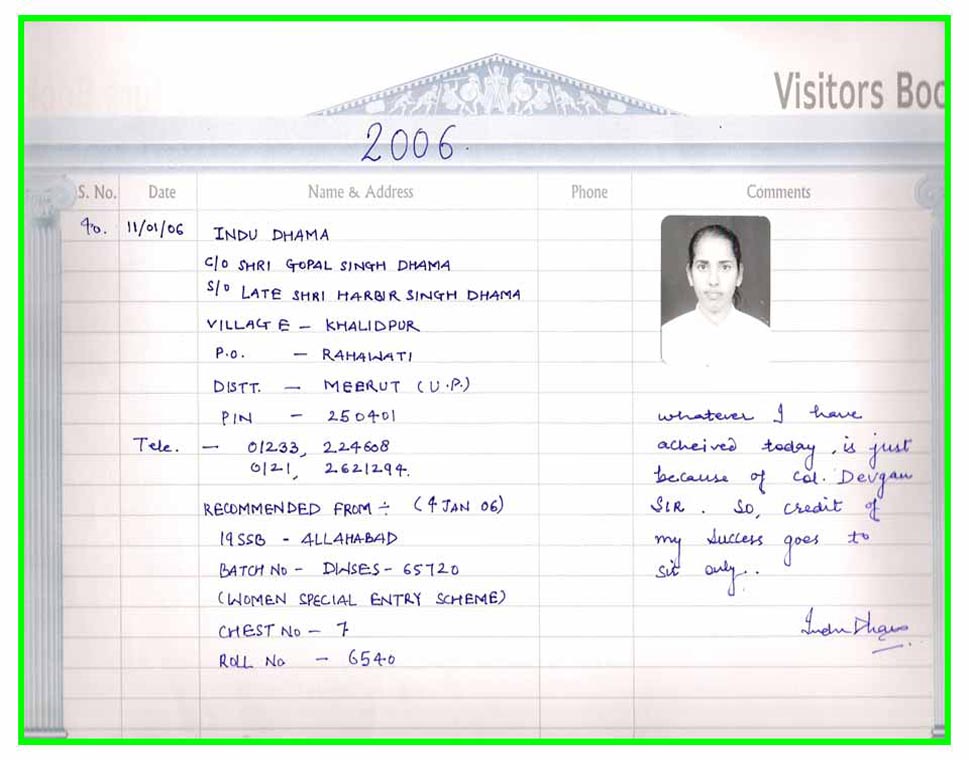 Visitors Boo
2006.
S. No. Date Name & Address Phone Comments
90. 11/01/06 INDU DHAMA
C/O SHRI GOPAL SINGH DHAMA
S/O LATE SHRI HARBIR SINGH DHAMA
VILLAGE – KHALIDPUR
P.O. – RAHAWATI
DISTT. – MEERUT (U.P.)
PIN – 250401
Tele. – 01233, 224608
0121, 2621294.
RECOMMENDED FROM ÷ (4 JAN 06)
19 SSB - ALLAHABAD
BATCH NO - DWSES - 65720
(WOMEN SPECIAL ENTRY SCHEME)
CHEST NO – 7
ROLL NO – 6540
whatever I have
acheived today, is just
because of Col. Devgan
SIR. So, credit of
my success goes to
sir only..
Indu Dhama